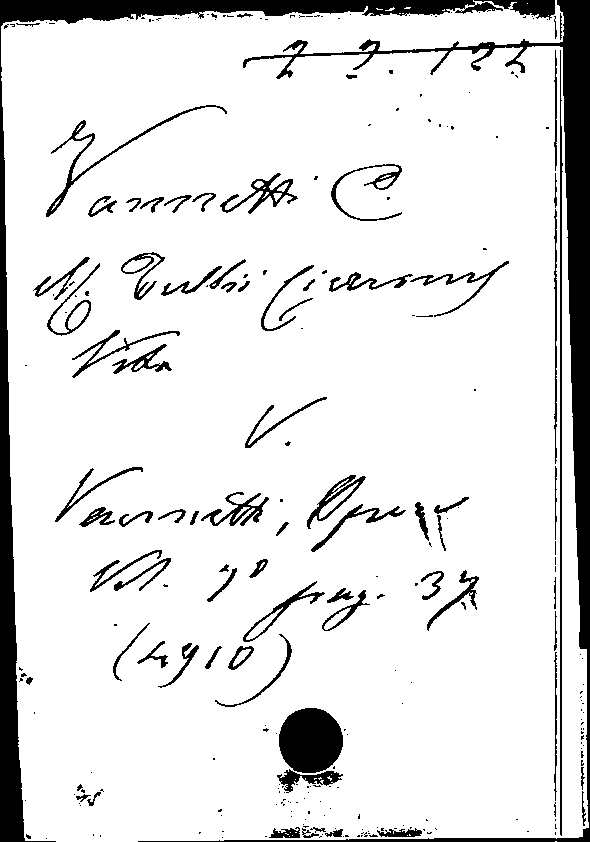 2 2. 122
Vannetti C.
M. Tullii Ciceronis
Vita
V.
Vannetti, Opere
Vol. 7º pag. 37
(4910)